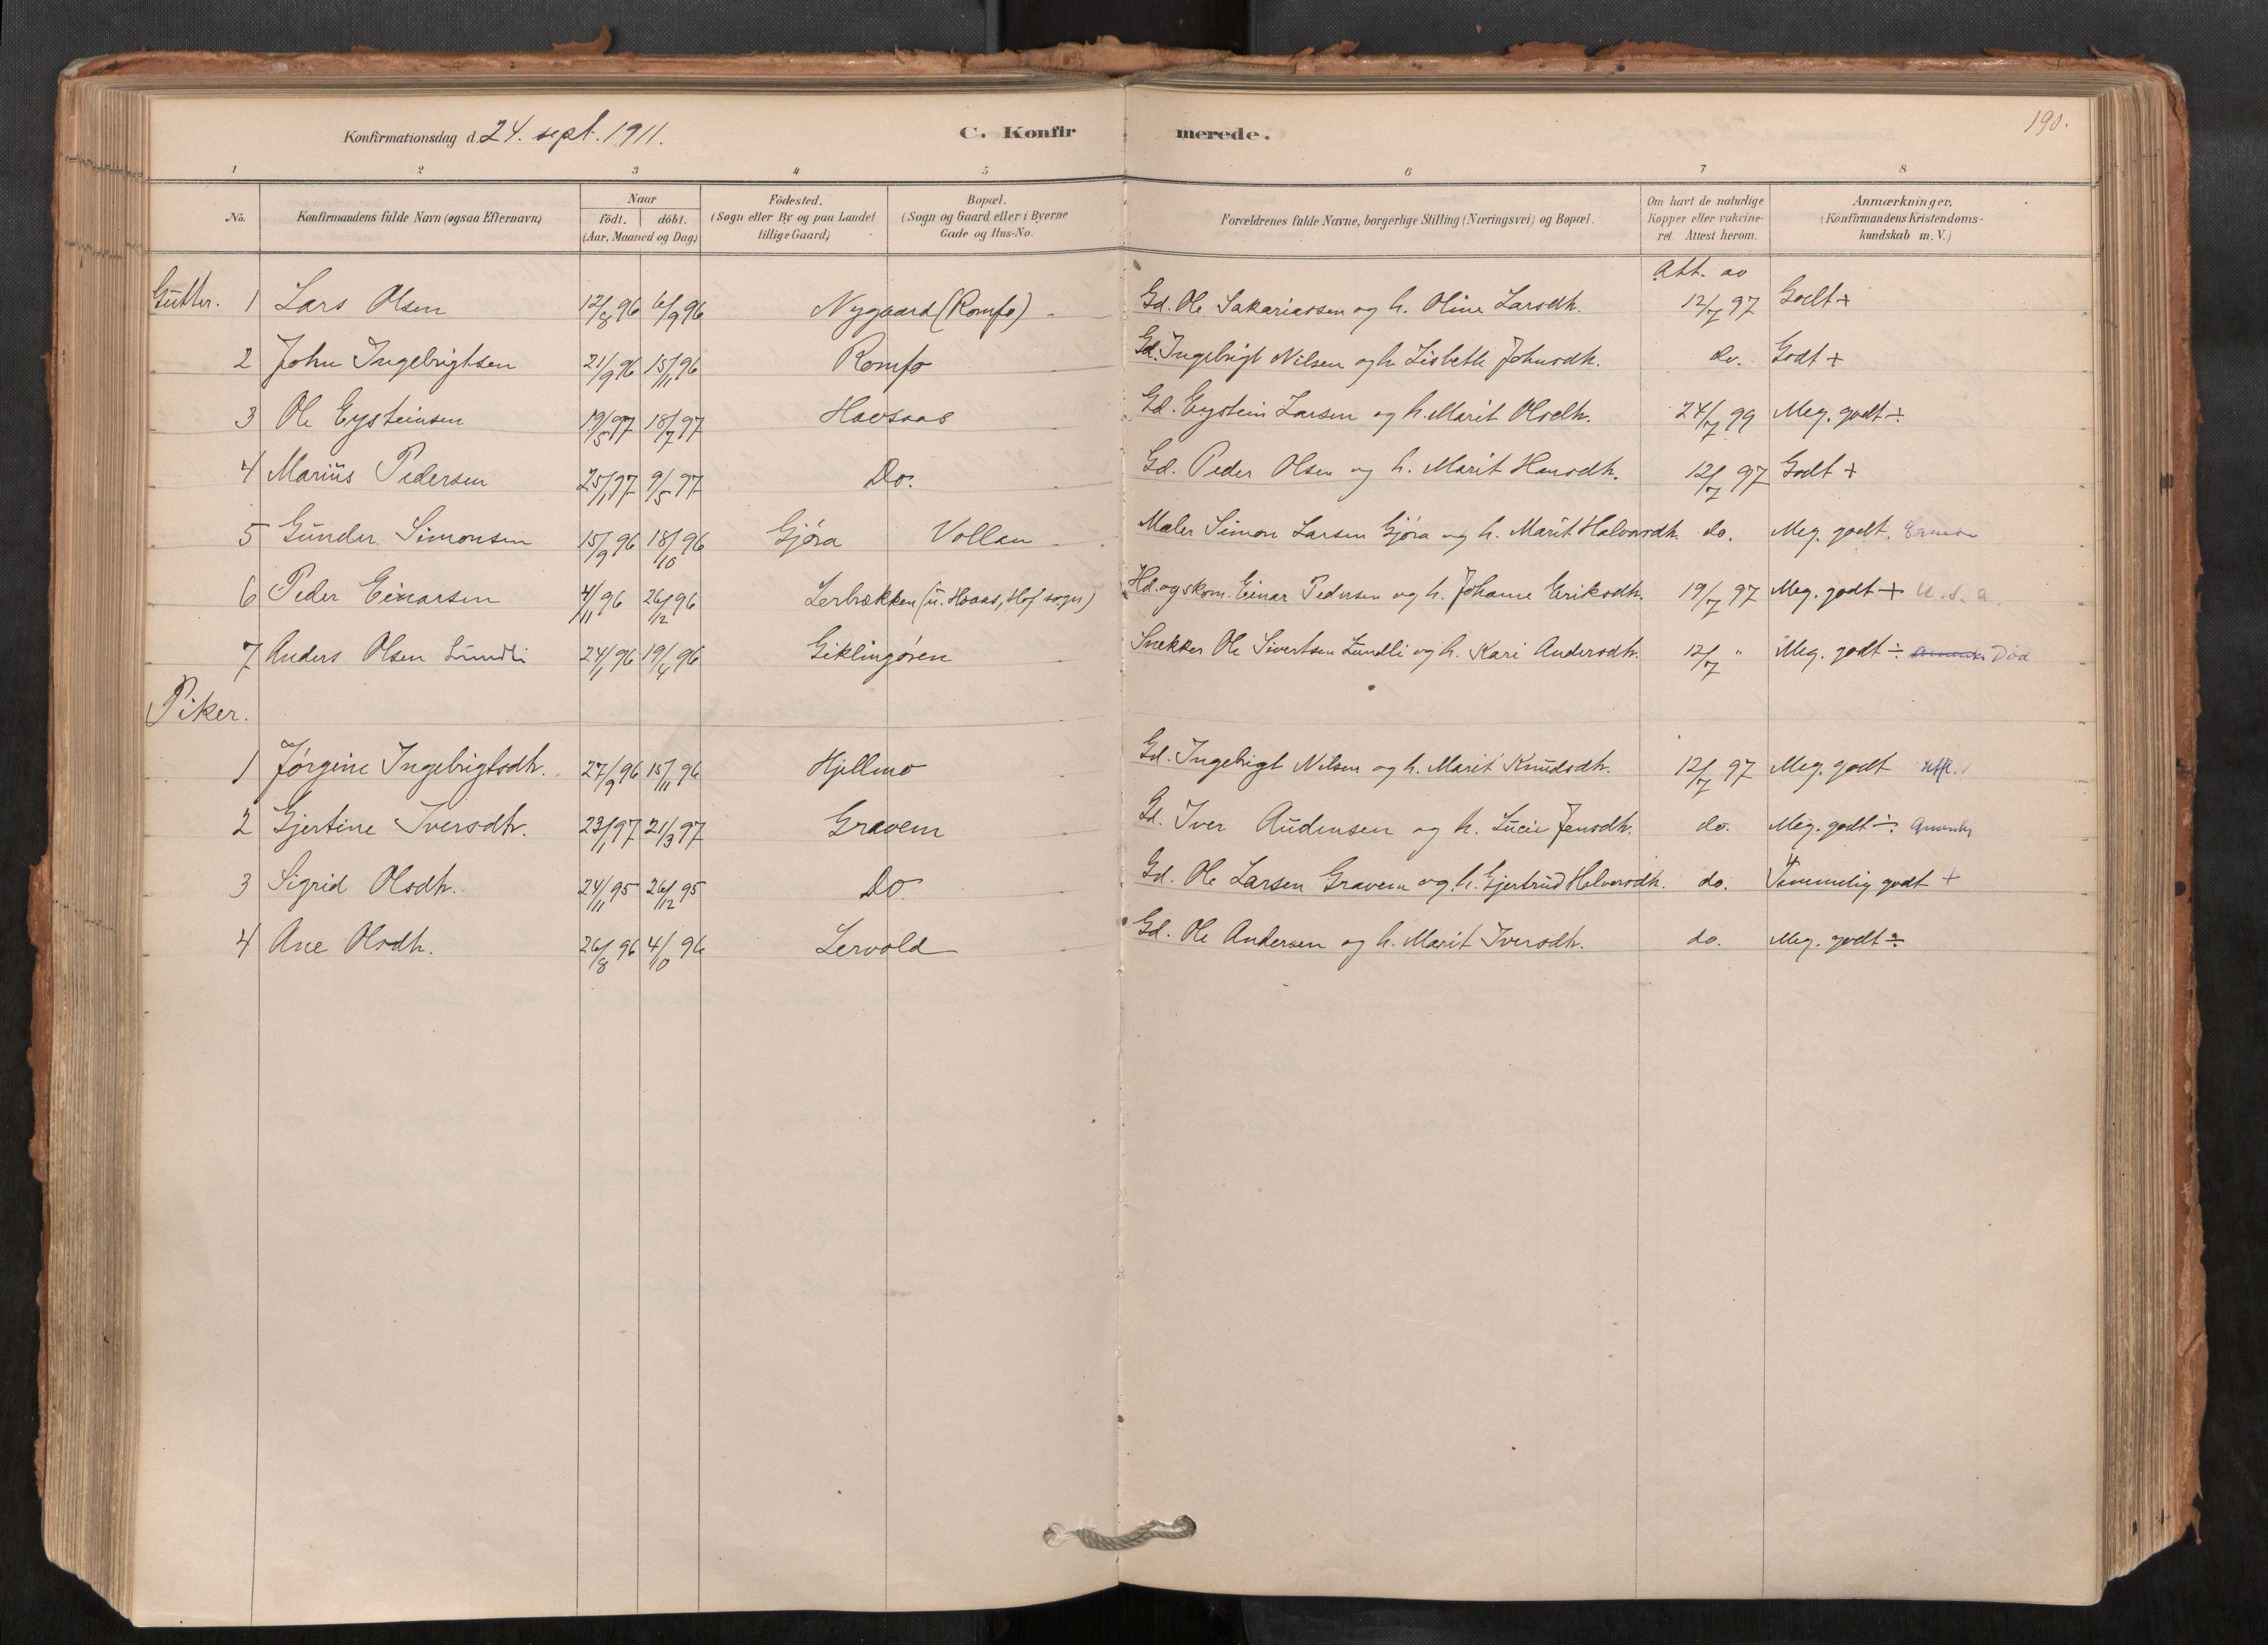 Konfirmationsdag d. 24. sept. 1911. C. Konfirmerede. 190.
1 2 3 4 5 6 7 8
No. Konfirmandens fulde Navn (ogsaa Efternavn) Naar födt. döbt. (Aar, Maaned og Dag) Födested. (Sogn eller By og paa Landet tillige Gaard) Bopæl. (Sogn og Gaard eller i Byerne Gade og Hus-No. Forældrenes fulde Navne, borgerlige Stilling (Næringsvei) og Bopæl. Om havt de naturlige Kopper eller vakcineret. Attest herom. Anmærkninger. (Konfirmandens Kristendomskundskab m. V.)
Att. av
Gutter. 1 Lars Olsen 12/8 96 6/9 96 Nygaard (Romfo) Gd. Ole Sakariassen og h. Oline Larsdtr. 12/7 97 Godt +
2 John Ingebrigtsen 21/9 96 15/11 96 Romfo Gd. Ingebrigt Nilsen og h. Lisbeth Johnsdtr. do. Godt +
3 Ole Eysteinsen 19/5 97 18/7 97 Hovsaas Gd. Eystein Larsen og h. Marit Olsdtr. 24/7 99 Meg. godt ÷
4 Marius Pedersen 25/1 97 9/5 97 Do. Gd. Peder Olsen og h. Marit Hansdtr. 12/7 97 Godt +
5 Gunder Simonsen 15/9 96 18/10 96 Gjøra Vollan Maler Simon Larsen Gjøra og h. Marit Halvorsdtr. do. Meg. godt.
6 Peder Einarsen 4/11 96 26/12 96 Lerbækken (u. Hoaas, Hof sogn) Hd. og skom. Einar Pedersen og h. Johanne Eriksdtr. 19/7 97 Meg. godt + U.S.a.
7 Anders Olsen Lundli 24/1 96 19/4 96 Giklingøren Snekker Ole Sivertsen Lundli og h. Kari Andersdtr. 12/7 " Meg. godt ÷ Død
Piker.
1 Jørgine Ingebrigtsdtr. 27/9 96 15/11 96 Hjellmo Gd. Ingebrigt Nilsen og h. Marit Knudsdtr. 12/7 97 Meg. godt Utfl.
2 Gjertine Iversdtr. 23/1 97 21/3 97 Gravem Gd. Iver Audensen og h. Lucie Jensdtr. do. Meg. godt ÷
3 Sigrid Olsdtr. 24/11 95 26/12 95 Do. Gd. Ole Larsen Gravem og h. Gjertrud Halvorsdtr. do. Temmelig godt +
4 Ane Olsdtr. 26/8 96 4/10 96 Lervold Gd. Ole Andersen og h. Marit Iversdtr. do. Meg. godt ÷